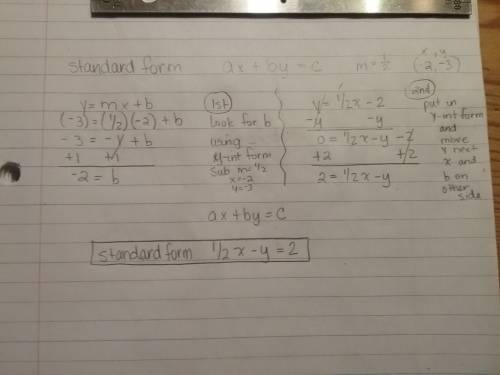 standard form   ax + by = c   m = 1/2   (-2, -3)
x, y
y = mx + b   1st
(-3) = (1/2)(-2) + b   look for b
-3 = -1 + b   using
+1   +1   y-int form
-2 = b   sub m = 1/2
x = -2
y = -3
y = 1/2x - 2   2nd
-y   -y   put in
0 = 1/2x - y - 2   y-int form
+2   +2   and
2 = 1/2x - y   move
y next
x and
b on
other
side
ax + by = c
standard form   1/2 x - y = 2